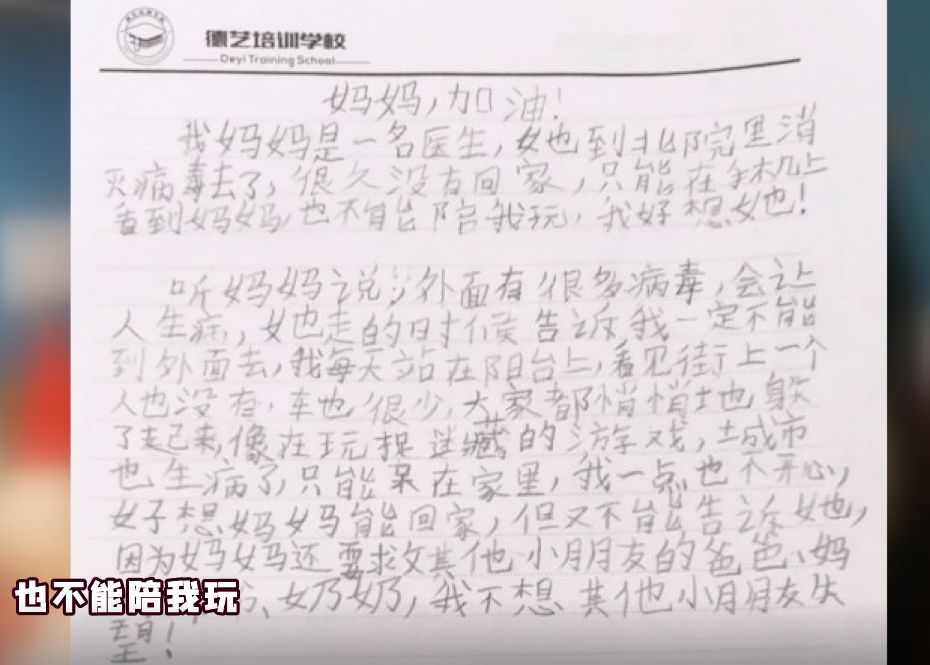 德艺培训学校
Deyi Training School
妈妈，加油！
我妈妈是一名医生，她到北院里消
灭病毒去了，很久没有回家，只能在手机上
看到妈妈，也不能陪我玩，我好想她！
听妈妈说：外面有很多病毒，会让
人生病，她走的时候告诉我一定不能
到外面去，我每天站在阳台上，看见街上一个
人也没有，车也很少，大家都悄悄地躲
了起来，像在玩捉迷藏的游戏，城市
也生病了，只能呆在家里，我一点也不开心，
好想妈妈能回家，但又不能告诉她，
因为妈妈还要求救其他小朋友的爸爸、妈
奶奶，我不想其他小朋友失
望！
也不能陪我玩